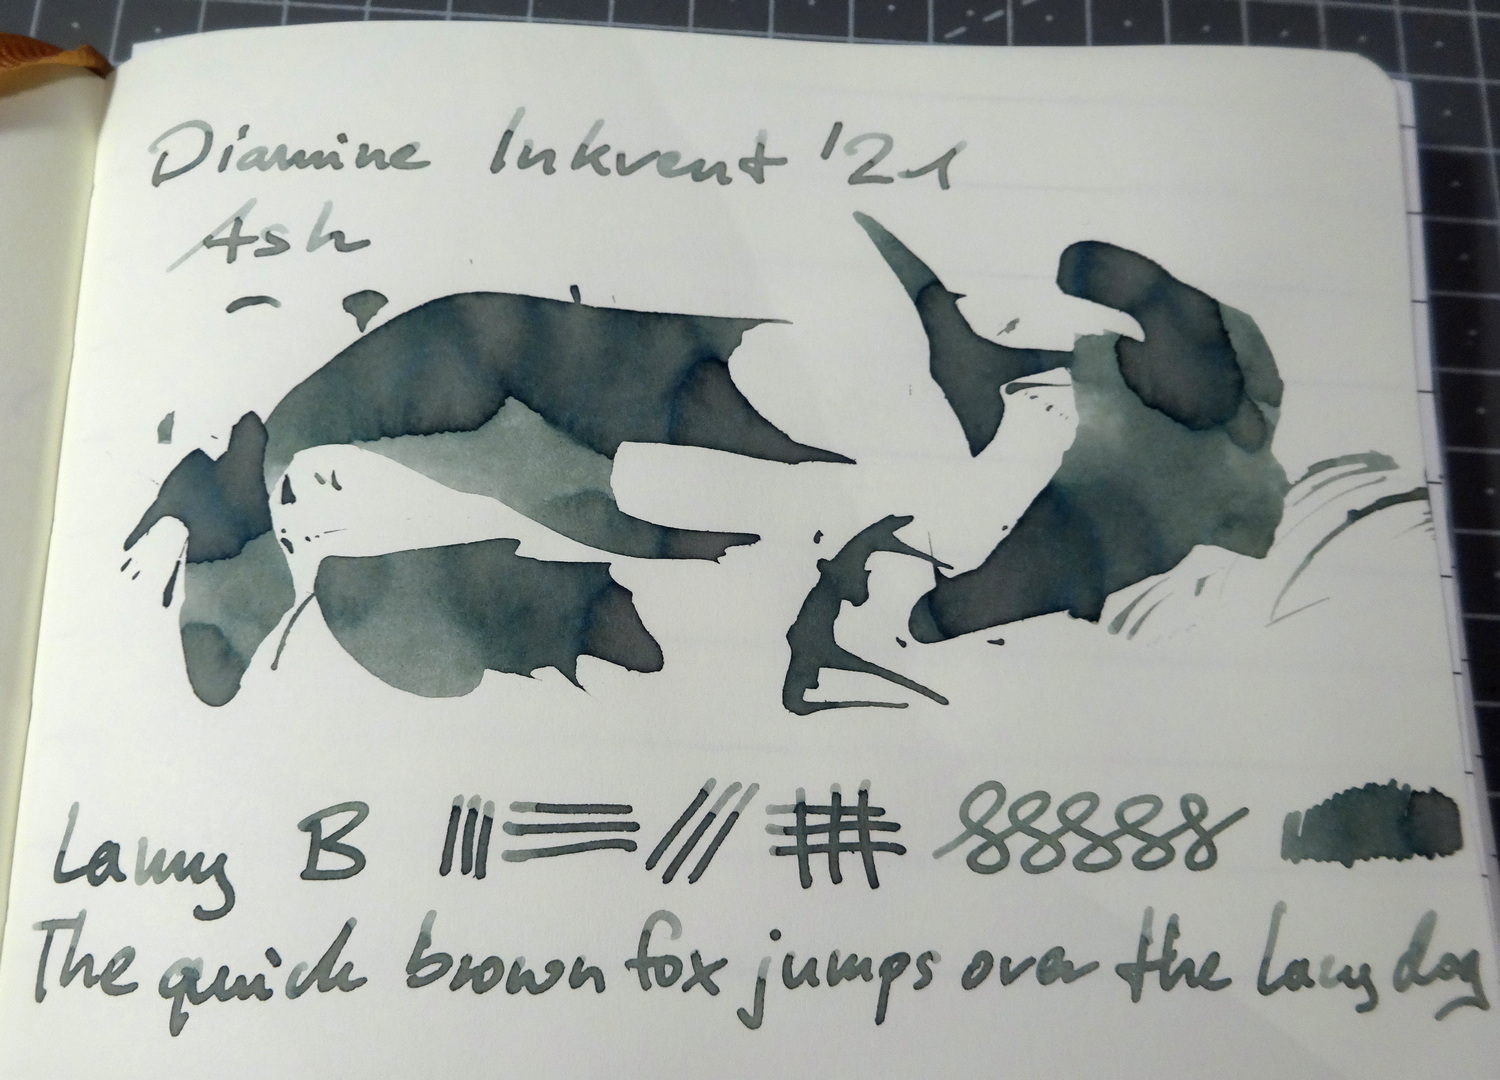 Diamine Inkvent '21
Ash
Lamy B
The quick brown fox jumps over the lazy dog